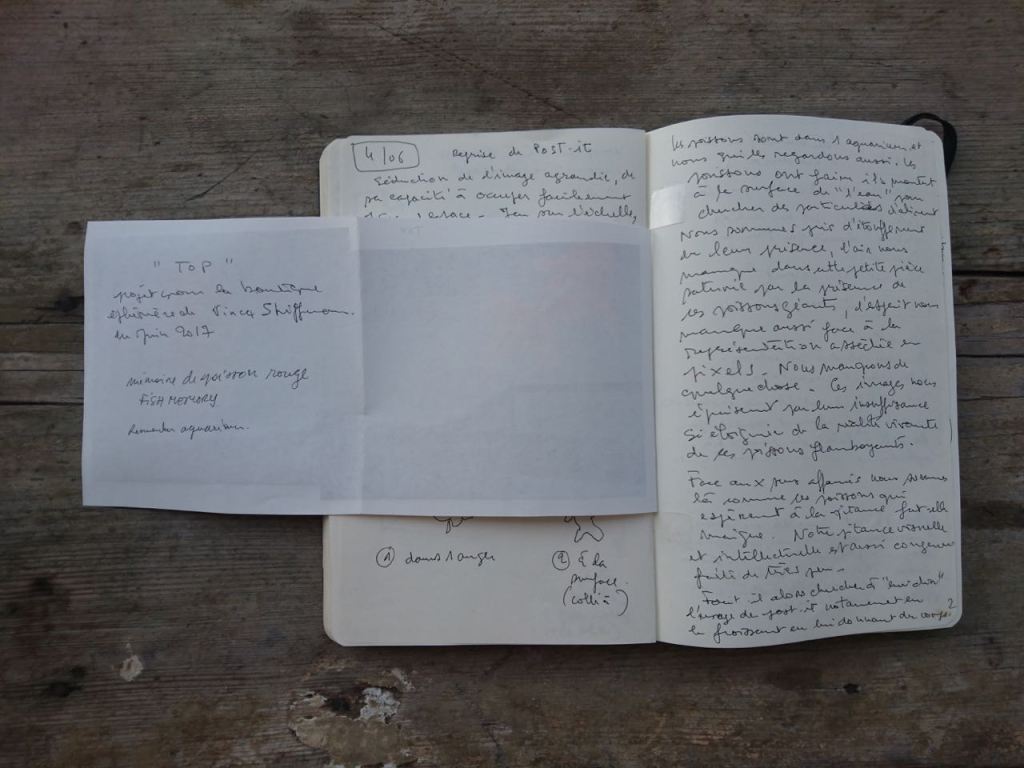 4/06
Reprise de Post-it
Séduction de l'image agrandie, de
sa capacité à occuper facilement
l'espace - Jeu sur l'échelle,
" TOP "
projet pour la boutique
éphémère de Vincq Shiffmann.
en Juin 2017
mémoire de poisson rouge
FISH MEMORY
aquarium.
1 dans l'auge
2 à la
surface.
Les poissons sont dans l'aquarium et
nous qui les regardons aussi. Les
poissons ont faim ils montent
à la surface de "l'eau" pour
chercher des particules d'aliment
Nous sommes pris d'étouffement
de leur présence, l'air nous
manque dans cette petite pièce
par la présence de
ces poissons géants, l'esprit nous
manque aussi face à la
représentation asséchée en
pixels. Nous manquons de
quelque chose. Ces images nous
épuisent par leur insuffisance
Si éloignée de la réalité vivante
de ces poissons flamboyants.
Face aux yeux affamés nous sommes
là comme ces poissons qui
espèrent à la pitance fut-elle
maigre. Notre pitance visuelle
et intellectuelle est aussi
faite de très peu.
Faut il alors chercher à
l'image de post-it notamment en
le froissant en lui donnant du corps.
2